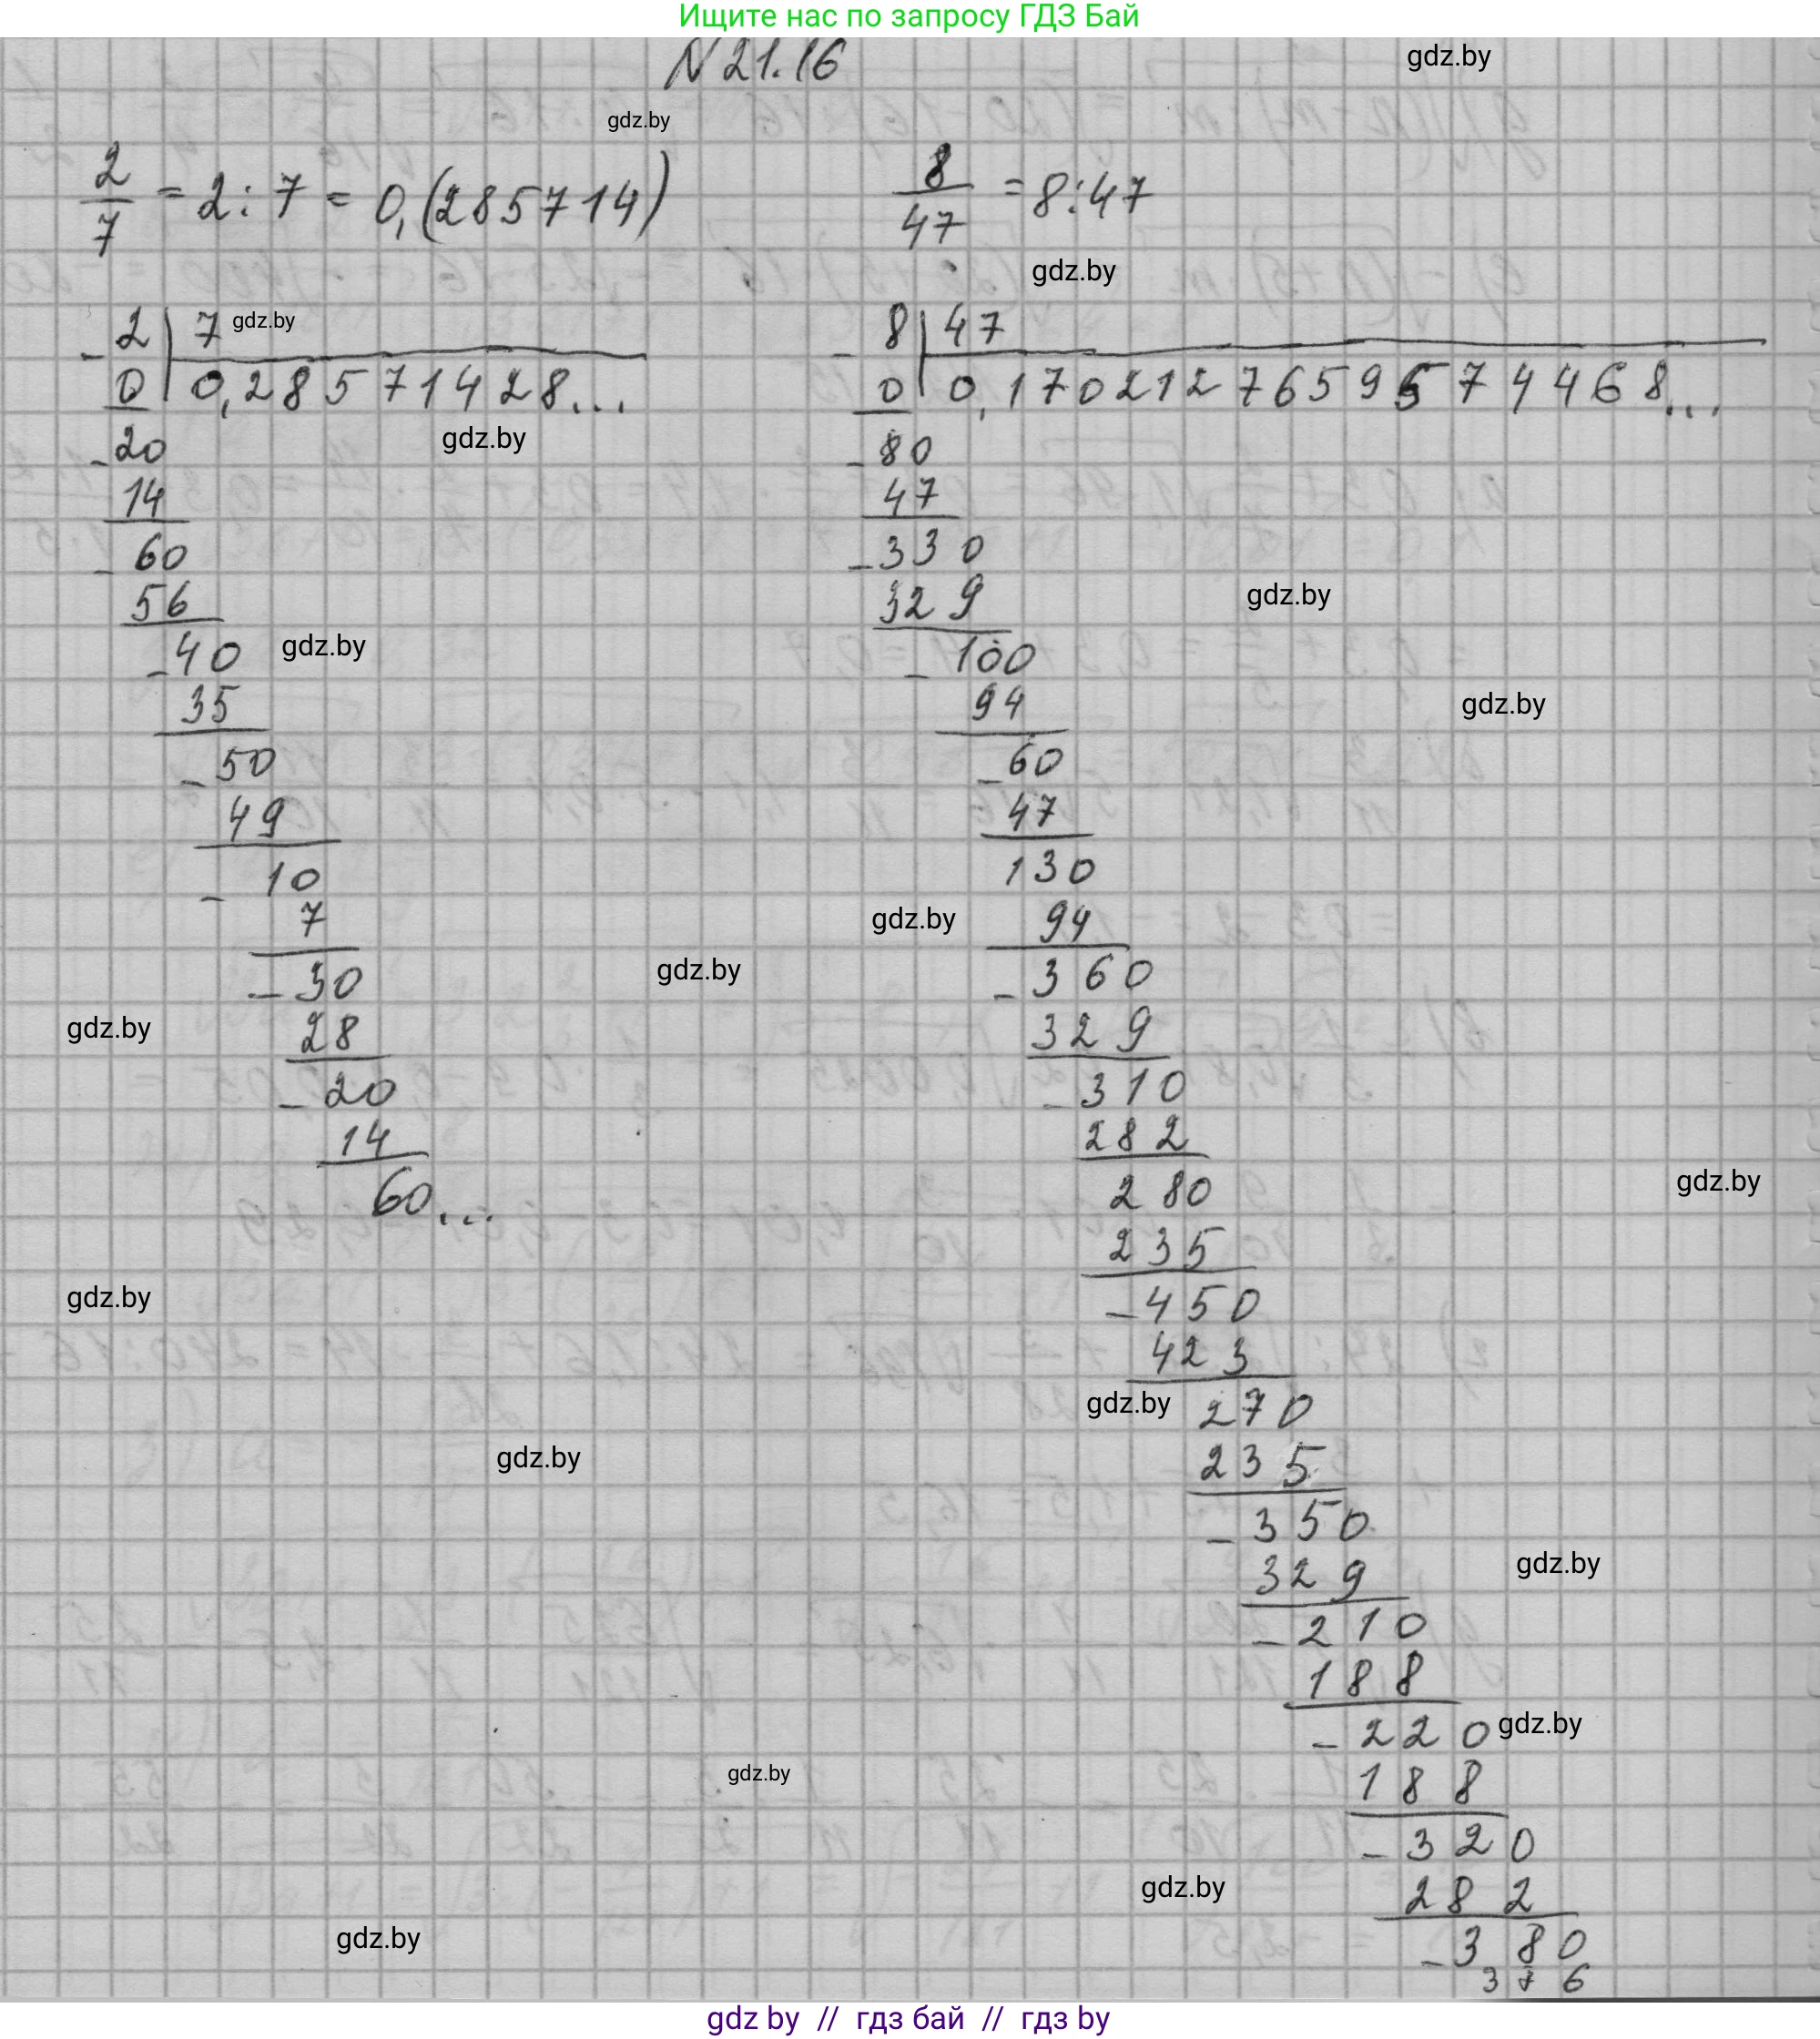 Ищите нас по запросу ГДЗ Бай
N 21.16
gdz.by
gdz.by
2/7 = 2 : 7 = 0,(285714)
8/47 = 8 : 47
gdz.by
- 2 | 7
gdz.by
0 | 0,28571428...
- 20
gdz.by
14
- 60
56
- 40
gdz.by
35
- 50
49
- 10
7
- 30
gdz.by
28
gdz.by
- 20
14
60...
gdz.by
gdz.by
gdz.by
gdz.by
- 8 | 47
0 | 0,17021276595744 68...
- 80
47
- 330
329
gdz.by
- 100
94
gdz.by
- 60
47
130
94
gdz.by
- 360
329
- 310
282
280
gdz.by
235
- 450
423
270
gdz.by
235
- 350
329
gdz.by
- 210
188
- 220
gdz.by
188
- 320
282
gdz.by
- 380
376
gdz by // гдз бай // гдз by